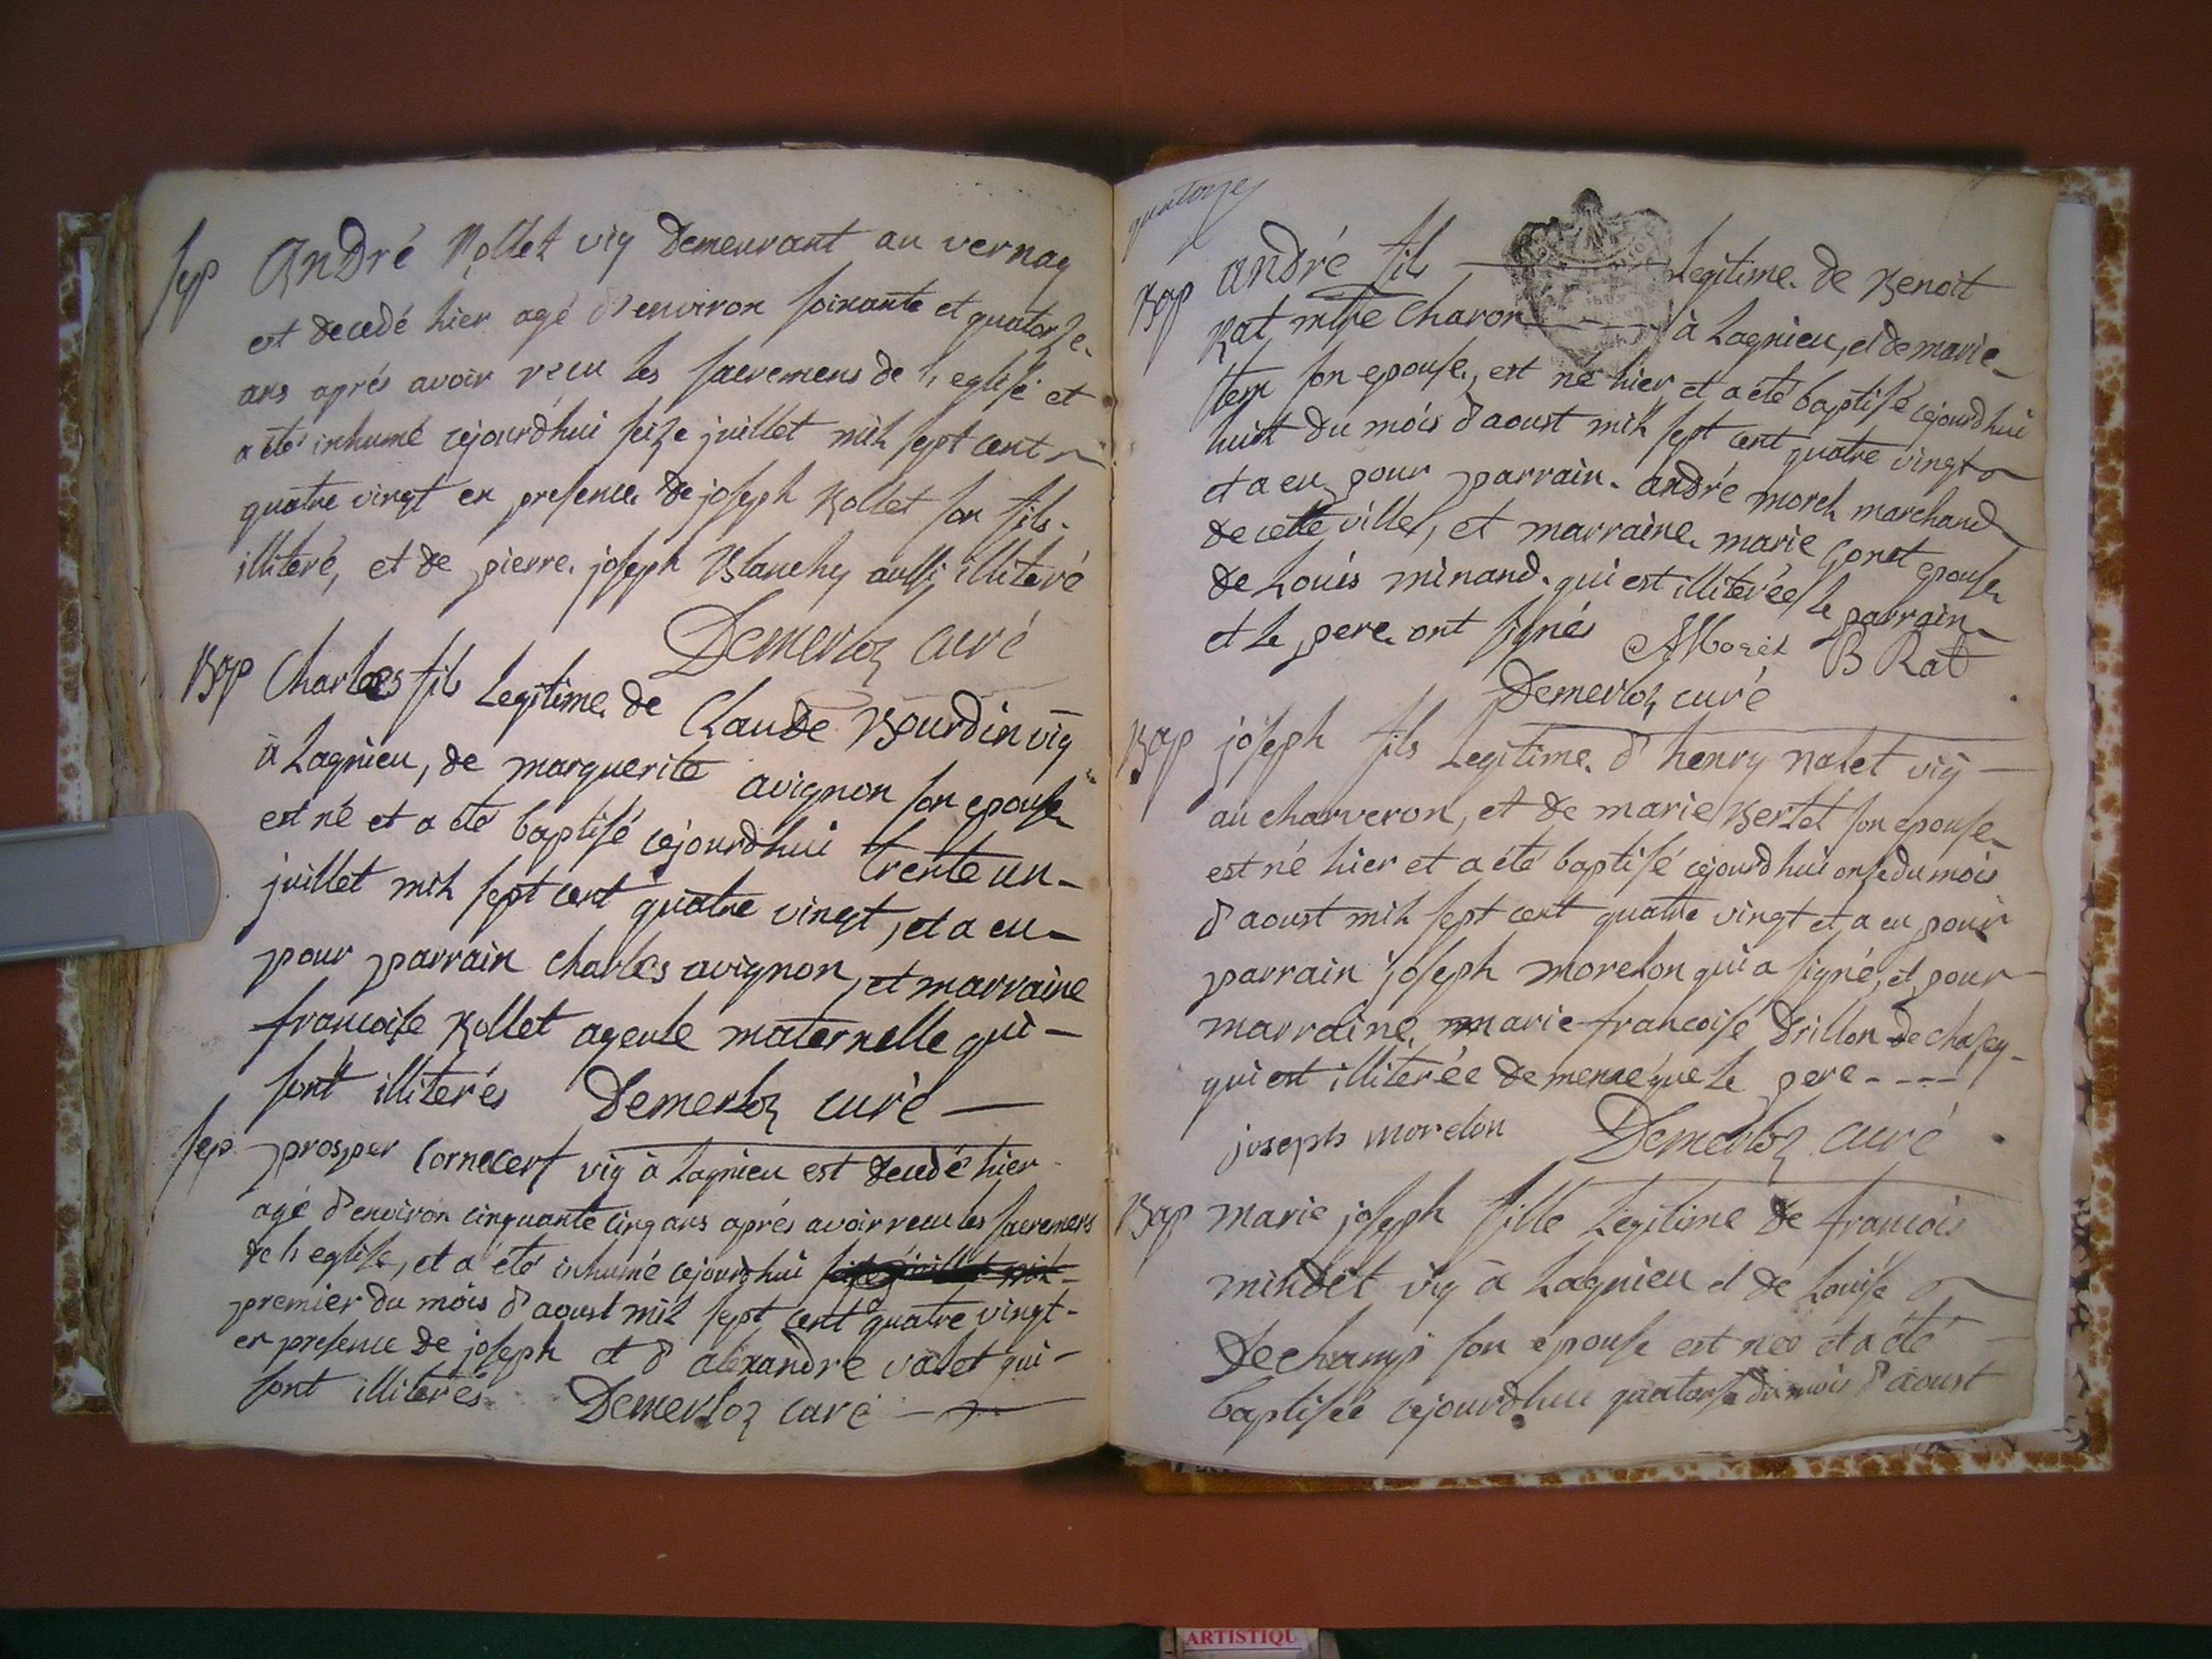 sep
André Rollet vig Demeurant au vernay
est decedé hier agé d'environ soixante et quatorze
ans aprés avoir recu les sacremens de l'eglise et
a été inhumé cejourdhui seize juillet mil sept cent
quatre vingt en presence de joseph Rollet son fils
illiteré, et de pierre joseph Blanchy aussi illiteré
Demerloz curé
Bap
Charles fils Legitime de Claude Bourdin vig
à Lagnieu, de marguerite avignon son epouse
est né et a été baptisé cejourdhui trente un
juillet mil sept cent quatre vingt, et a eu
pour parrain charles avignon, et marraine
francoise Rollet ayeule maternelle qui
sont illiterés Demerloz curé
sep
prosper Cornecert vig à Lagnieu est decedé hier
agé d'environ cinquante cinq ans aprés avoir recu les sacremens
de l'eglise, et a été inhumé cejourdhui seize juillet mil
premier du mois d'aoust mil sept cent quatre vingt
en presence de joseph et d'alexandre valet qui
sont illiterés Demerloz curé
quatorze
Bap
André fils Legitime de Benoit
Rat mtre Charon à Lagnieu, et de marie
son epouse, est né hier, et a été baptisé cejourdhui
huit du mois d'aoust mil sept cent quatre vingt
et a eu pour parrain andré morel marchand
de cette ville, et marraine marie epouse
de Louis minand qui est illiterée le parrain
et le pere ont signés AMorel B Rat
Demerloz curé
Bap
joseph fils Legitime d'henry nalet vig
au charveron, et de marie Bertet son epouse
est né hier et a été baptisé cejourdhui onse du mois
d'aoust mil sept cent quatre vingt et a eu pour
parrain joseph morelon qui a signé, et pour
marraine marie francoise Drillon de chasey
qui est illiterée de meme que le pere
joseph morelon Demerloz curé
Bap
marie joseph fille Legitime de francois
mindet vig à Lagnieu et de Louise
Dechamp son epouse est nee et a été
baptisée cejourdhui quatorse du mois d'aoust
ARTISTIQU